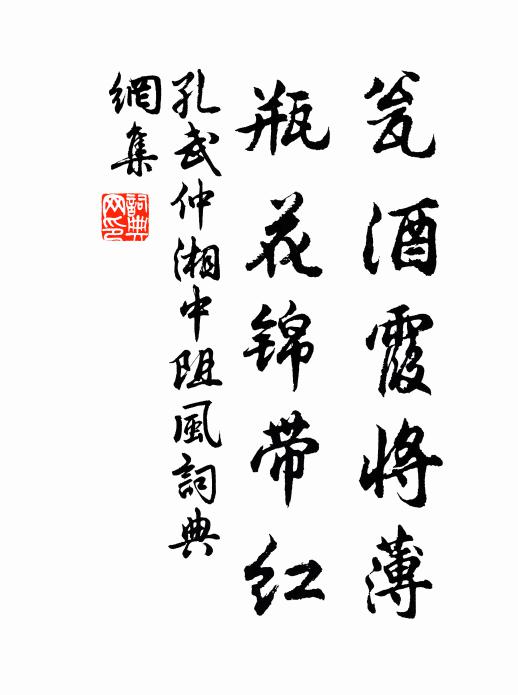 瓮酒霞将薄
瓶花锦带红
孔武仲湘中阻風詞典
網集
詞典
网印